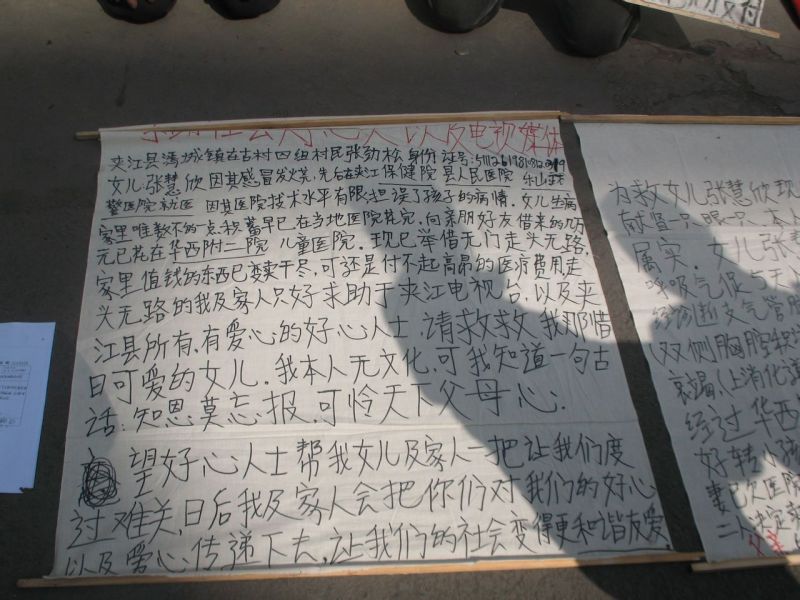 求助社会好心人以及电视媒体
夹江县漹城镇在古村四组村民张劲松身份证号:
女儿张慧欣因其感冒发火尧,先后在夹江保健院县人民医院
警医院就医 因其医院技术水平有限担误了孩子的病情.女儿生病
家里唯数不的一点积蓄早已在当地医院花完,向亲朋好友借来的几万
元已花在华西附二院 儿童医院.现已举借无门走头无路.
家里值钱的东西已变卖干尽,可还是付不起高昂的医疗费用走
头无路的我及家人只好求助于夹江电视台,以及夹
江县所有,有爱心的好心人士,请救救我那惜
日可爱的女儿.我本人无文化,可我知道一句古
话:知恩莫忘报,可怜天下父母心:
望好心人士帮我女儿及家人一把让我们度
过难关,日后我及家人会把你们对我们的好心
以及爱心传递下去,让我们的社会变得更和谐友爱.
为救女儿张慧欣现
献肾一只眼一只.本人
属实.女儿张慧
呼吸气促5天入
经诊断支气管肺
(双侧胸腔积
衰竭,上消化道
经过华西
好转小孩
妻已欠医院
二人决定卖